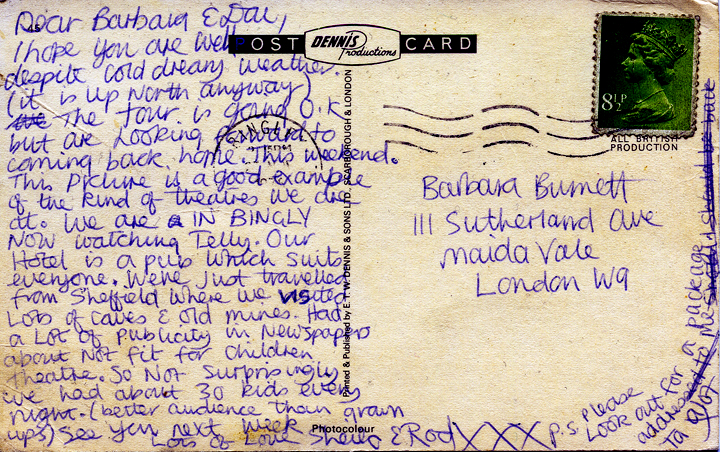 Dear Barbara & Dai,
I hope you are well
despite cold dreary weather.
(it is up North anyway)
The tour is going O.K
but are looking forward to
coming back home. This weekend.
This picture is a good example
of the kind of theatres we are
at. We are IN BINGLY
NOW watching Telly. Our
Hotel is a pub which suits
everyone. We've just travelled
from Sheffield where we visited
Lots of caves & old mines. Had
a Lot of publicity in Newspapers
about Not fit for children
theatre. So Not surprisingly
we had about 30 kids every
night. (better audience than grown
ups) See you next week
Lots of Love Sheila & Rod XXX
P.S. please
Look out for a package
addressed to Me
Ta
POST CARD
DENNIS
Productions
Printed & Published by E. T. W. DENNIS & SONS LTD., SCARBOROUGH & LONDON
Photocolour
8½P
ALL BRITISH
PRODUCTION
Barbara Burnett
111 Sutherland Ave
Maida Vale
London W9